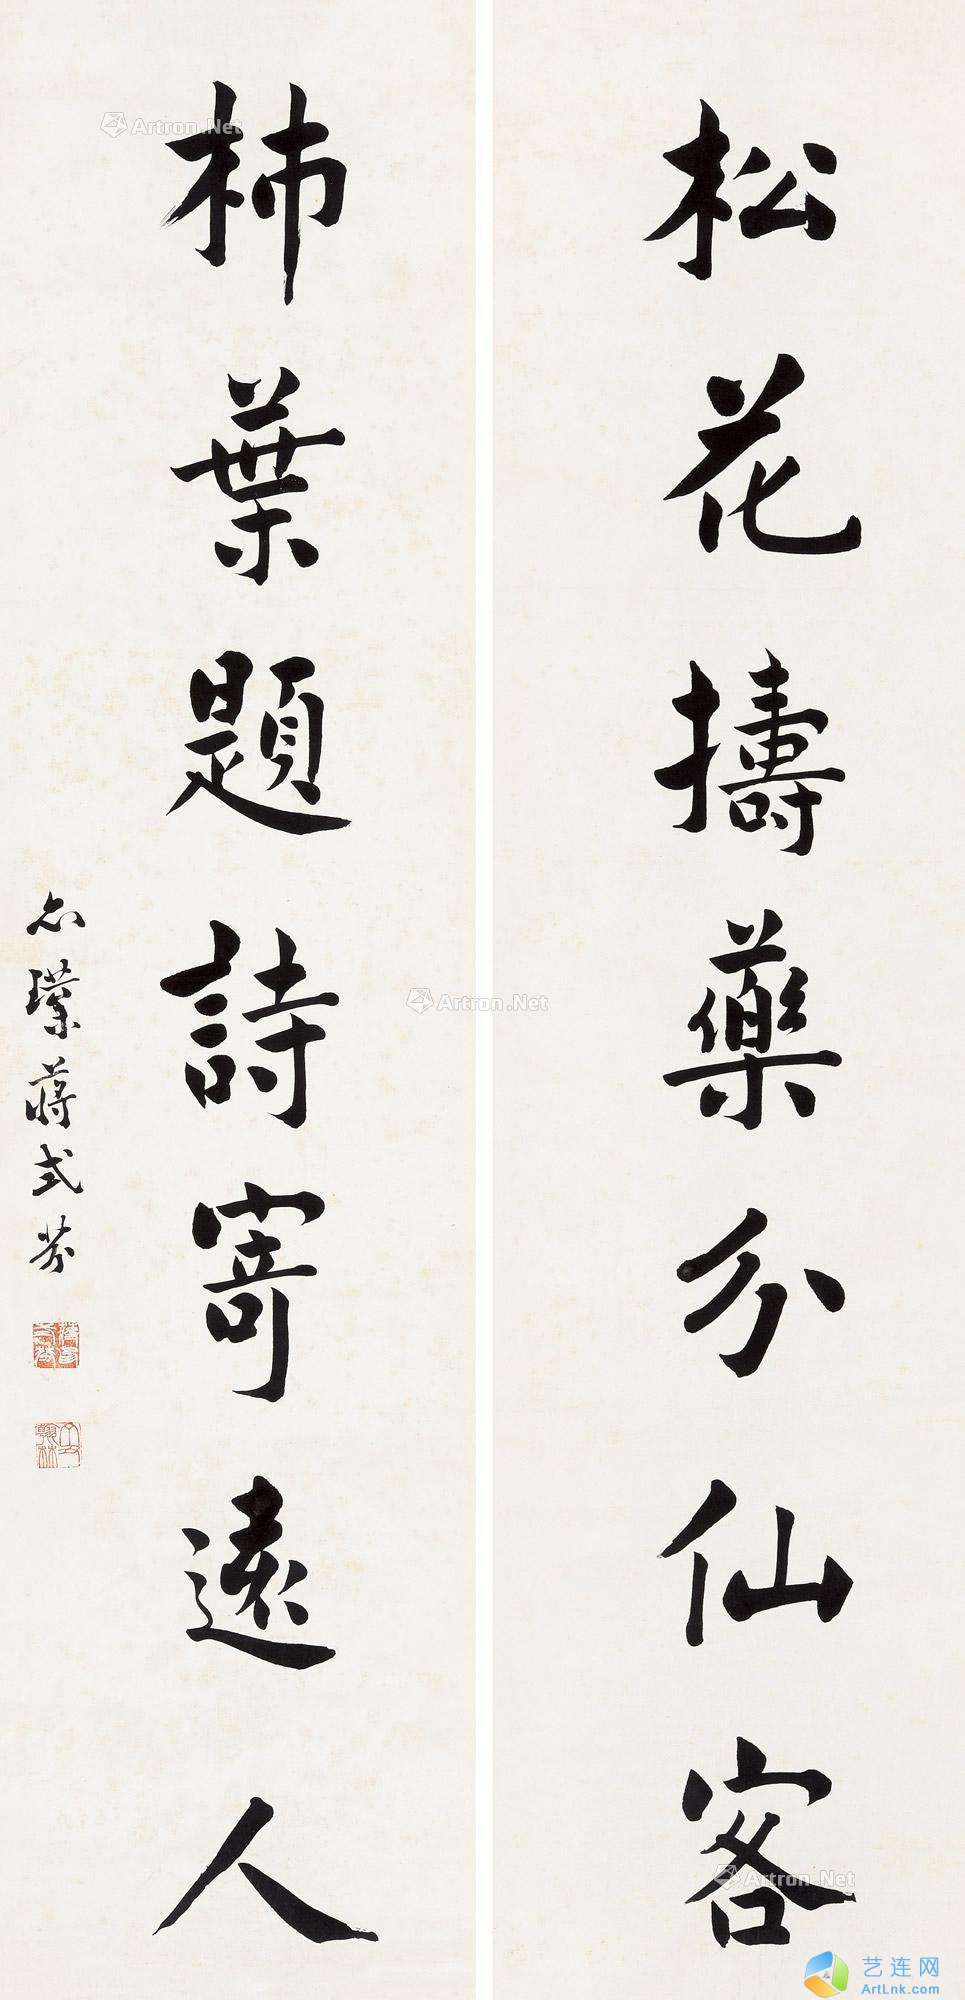 松花擣藥分仙客
柿葉題詩寄遠人
心璞蔣式芬
Artron.Net
Artron.Net
Artron.Net
艺连网
ArtLnk.com